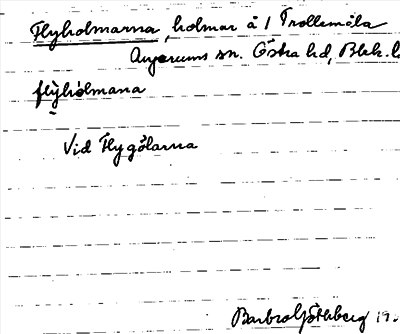 Flyholmarna, holmar å 1 Trollemåla
Augerums sn. Östra hd, Blek. l
flỳhólmana
Vid Flygölarna
Barbro Götheberg 19